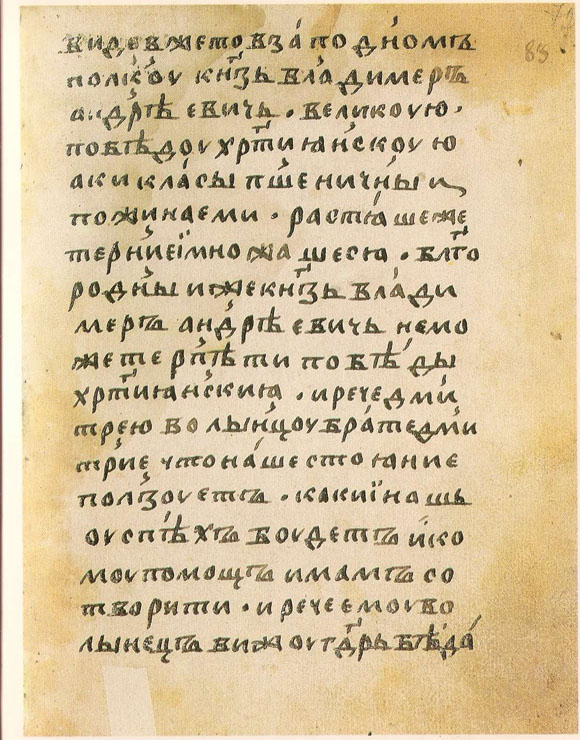 83
видевжетовза́подно́мъ
полко́у кн҃ѕь вла́димеръ
андрѣ́евичь. великоую.
побѣдоу хрⷭ҇тиꙗ́нскоую
аки кла́сы пшени́чныи
пожинаеми. растꙗ́шеже
те́рниеїмножа́шесѧ. бл҃го
родныиже кн҃ѕь вла́ди
меръ андрѣ́евичь немо
жете рпѣ́ти побѣ́ды
хрⷭ҇тиꙗ́нскиꙗ. и рече дми́
трею волы́нцоу бра́те дми
трие что на́ше стоꙗние
пользоуетъ. какиї нашь
оуспѣ́хъ боудетъ и́ко
моу помощъ имамъ со
творити. и рече емоу во
лынецъ вижоу гⷭ҇дрь бѣда́